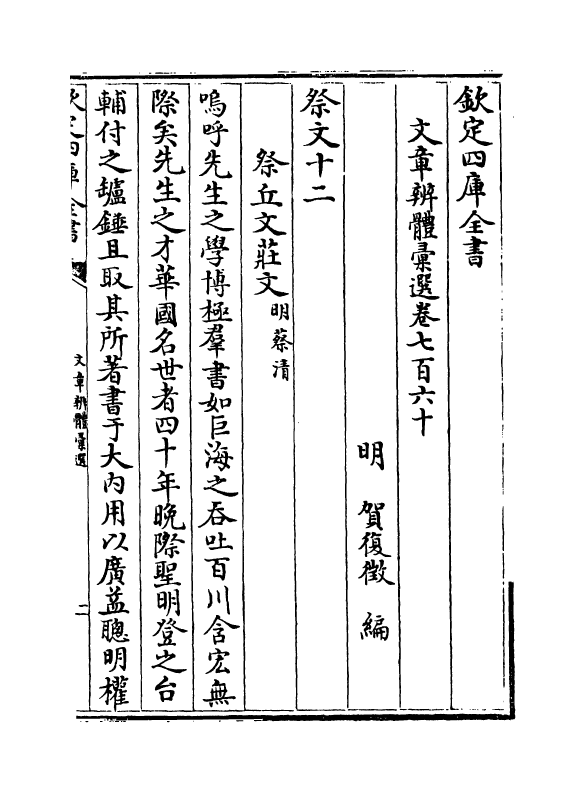 欽定四庫全書
文章辨體彚選卷七百六十
明 賀復徵 編
祭文十二
祭丘文莊文 明蔡清
嗚呼先生之學博極羣書如巨海之吞吐百川含宏無
際矣先生之才華國名世者四十年晚際聖明登之台
輔付之罏錘且取其所著書于大內用以廣益聰明權
欽定四庫全書
文章辨體彚選